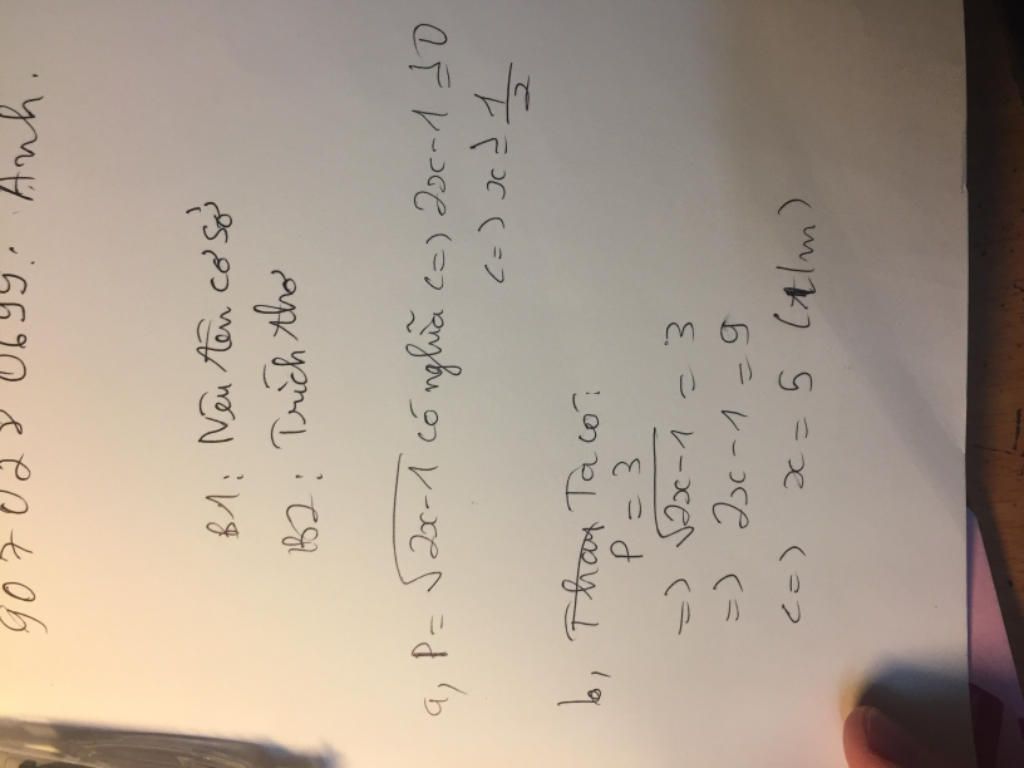 907 028 0699: Anh.
B1: Nêu tên cơ sở
B2: Trích thơ
a, P = √2x-1 có nghĩa <=> 2x-1 ≥ 0
<=> x ≥ 1/2
b, Thay Ta có:
P = 3
=> √2x-1 = 3
=> 2x-1 = 9
<=> x = 5 (t/m)